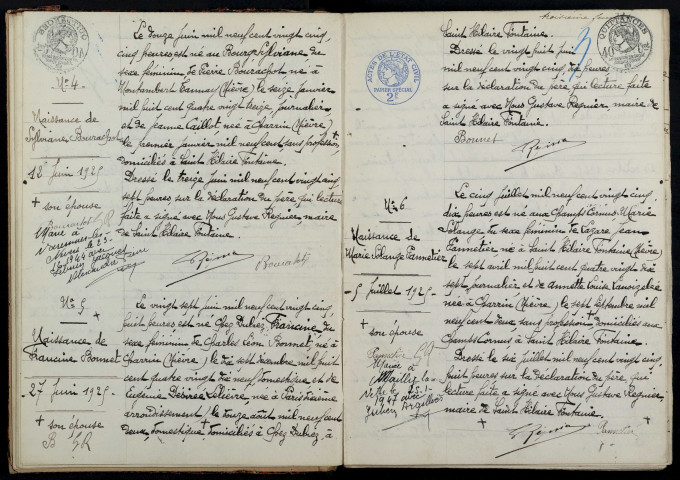 Nº 4
Naissance de
Sylviane Bourachot
12 Juin 1925
+ son épouse
Marié à
Varennes-les-
le 23-
1944 avec
Le douze juin mil neuf cent vingt cinq,
cinq heures est né au Bourg Sylviane du
sexe féminin de Pierre Bourachot né à
Montambert Tannay (Nièvre) le seize janvier
mil huit cent quatre vingt treize, journalier
et de Jeanne Caillot, née à Charrin (Nièvre)
le premier janvier mil neuf cent sans profession,
domiciliés à Saint Hilaire Fontaine.
Dressé le treize juin mil neuf cent vingt cinq
sept heures sur la déclaration du père qui lecture
faite a signé avec Nous Gustave Regnier, maire
de Saint Hilaire Fontaine.
Bourachot
Nº 5
Naissance de
Francine Bonnet
27 Juin 1925
+ son épouse
B GR
Le vingt sept juin mil neuf cent vingt cinq,
huit heures est née Chez Dubrez, Francine du
sexe féminin de Charles Léon Bonnet né à
Charrin (Nièvre) le dix sept décembre mil huit
cent quatre vingt dix neuf domestique et de
Eugénie Désirée née à Paris
arrondissement le douze août mil neuf cent
deux, domestique domiciliés à Chez Dubrez, à
Saint Hilaire Fontaine.
Dressé le vingt huit juin
mil neuf cent vingt cinq, dix heures
sur la déclaration du père, qui lecture faite
a signé avec Nous Gustave Regnier, maire de
Saint Hilaire Fontaine.
Bonnet
ACTES DE L'ÉTAT CIVIL
PAPIER SPÉCIAL
2F
QUITTANCES
3
Nº 6
Naissance de
Marie Solange Pannetier
5 Juillet 1925
+ son épouse
Marié à
1947 avec
Le cinq juillet mil neuf cent vingt cinq,
dix heures est née aux Champs Cornus Marie
Solange du sexe féminin de Lazare Jean
Pannetier né à Saint Hilaire Fontaine (Nièvre)
le sept avril mil huit cent quatre vingt dix
sept journalier et de Annette Louise
née à Charrin (Nièvre) le sept septembre mil
neuf cent deux sans profession domiciliés aux
Champs Cornus à Saint Hilaire Fontaine.
Dressé le six juillet mil neuf cent vingt cinq,
huit heures sur la déclaration du père, qui
lecture faite a signé avec Nous Gustave Regnier,
maire de Saint Hilaire Fontaine.